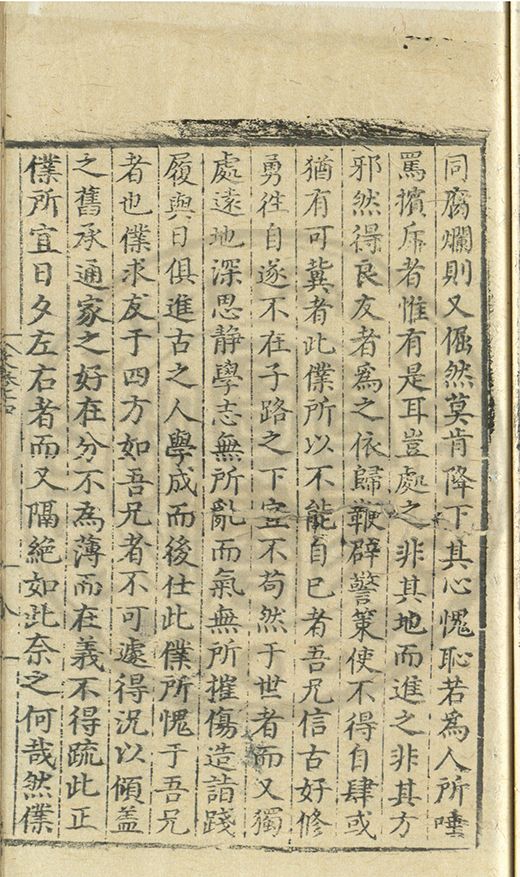 同腐爛則又倔然莫肯降下其心愧恥若為人所唾
罵擯斥者惟有是耳豈處之非其地而進之非其方
邪然得良友者為之依歸鞭辟警策使不得自肆或
猶有可冀者此僕所以不能自已者吾兄信古好修
勇往自遂不在子路之下宜不苟然于世者而又獨
處遠地深思静學志無所亂而氣無所摧傷造詣踐
履與日俱進古之人學成而後仕此僕所愧于吾兄
者也僕求友于四方如吾兄者不可遽得況以傾盖
之舊承通家之好在分不為薄而在義不得疏此正
僕所宜日夕左右者而又隔絶如此奈之何哉然僕